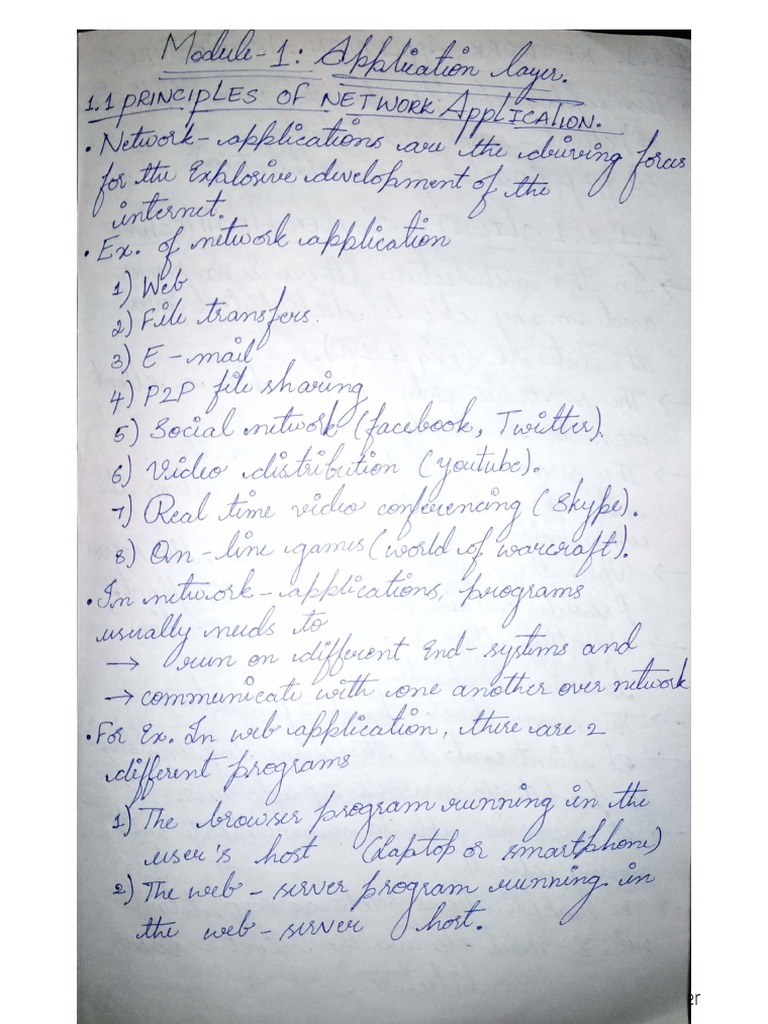 Module-1: Application layer.
1.1 PRINCIPLES OF NETWORK APPLICATION.
• Network-applications are the driving forces
for the Explosive development of the
internet.
• Ex. of network application
1) Web
2) File transfers.
3) E-mail
4) P2P file sharing
5) Social network (facebook, Twitter).
6) Video distribution (youtube).
7) Real time video conferencing (Skype).
8) On-line games (world of warcraft).
• In network-applications, programs
usually needs to
→ run on different End-systems and
→ communicate with one another over network
• For Ex. In web application, there are 2
different programs
1) The browser program running in the
user's host (Laptop or smartphone)
2) The web-server program running in
the web-server host.
er